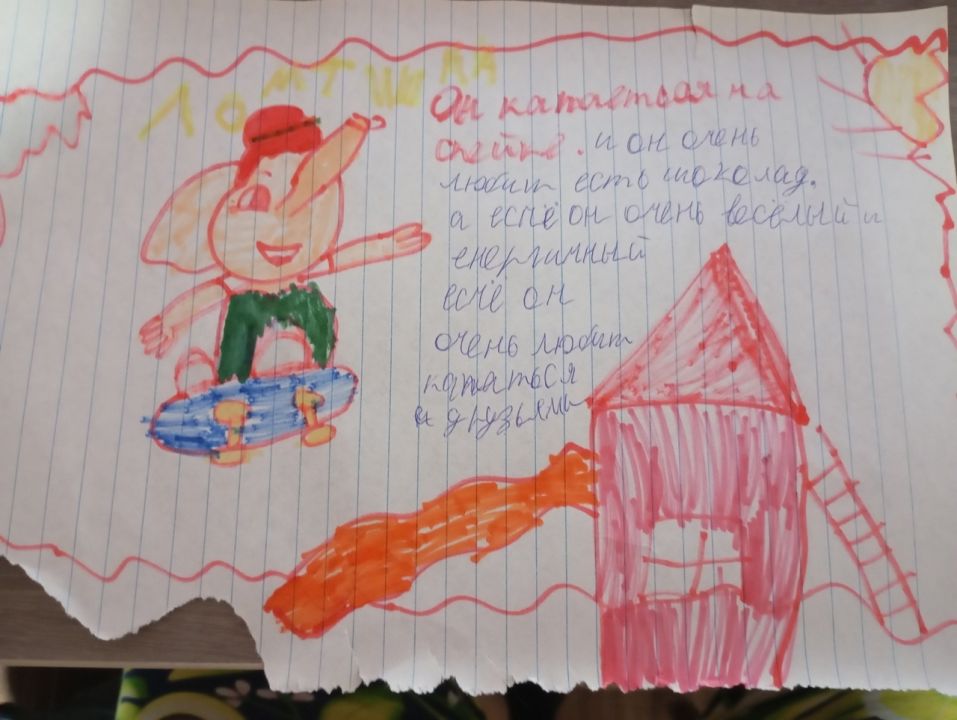 ЛОМТИШКА
Он катается на
скейте. и он очень
любит есть шоколад.
а есчё он очень весёлый и
енергичный
есчё он
очень любит
кататься
с друзьями